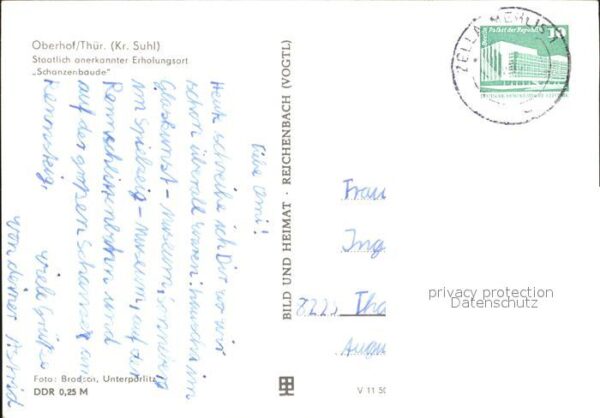 Oberhof/Thür. (Kr. Suhl)
Staatlich anerkannter Erholungsort
„Schanzenbaude"
Liebe Omi!
Heute schreibe ich Dir wo wir
schon überall waren: Lauscha im
Glaskunst-Museum, Sonneberg
im Spielzeug-Museum, auf der
Rennschlittenbahn und
auf der großen Schanze am
Rennsteig.
Viele Grüße
von deiner Astrid
Foto: Brodien, Unterpörlitz
DDR 0,25 M
BILD UND HEIMAT · REICHENBACH (VOGTL)
V 11 50
ZELLA-MEHLIS 1
Palast der Republik
10
Frau
Ing
8225 Tha
Augu
privacy protection
Datenschutz